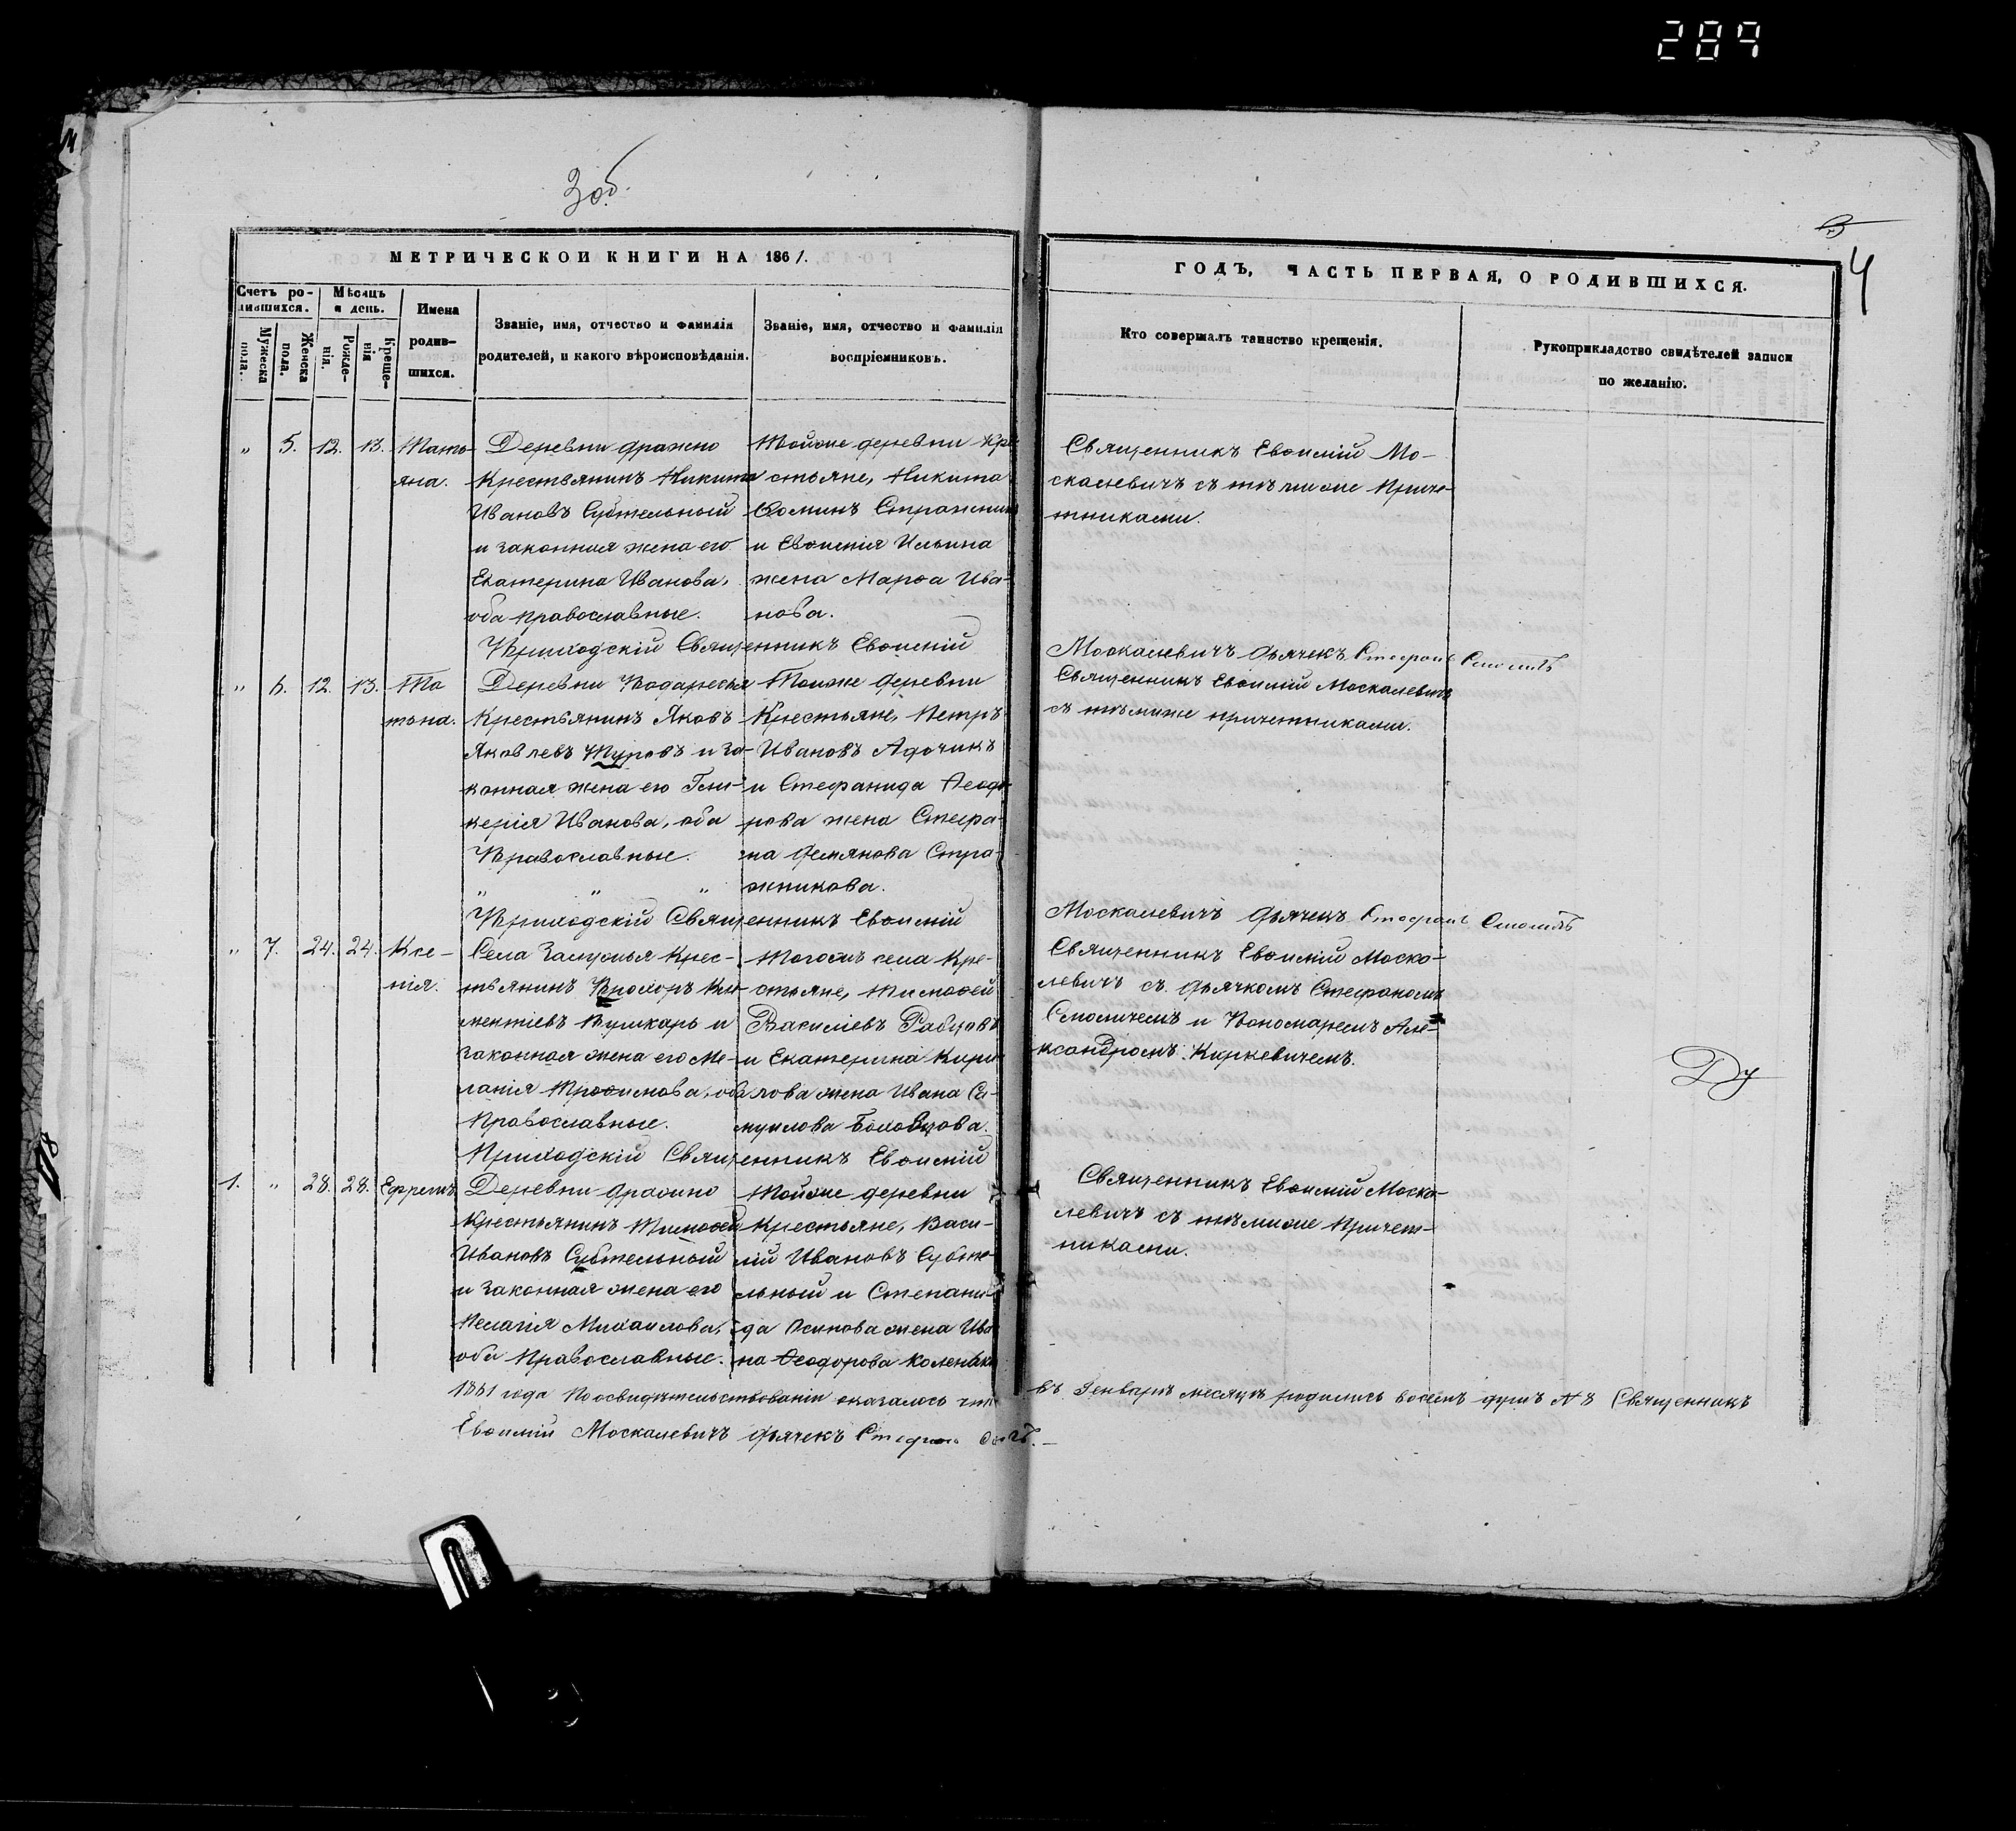 289
3 об.
4
МЕТРИЧЕСКОЙ КНИГИ НА 1861.
ГОДЪ, ЧАСТЬ ПЕРВАЯ, О РОДИВШИХСЯ.
Счетъ родившихся.
Мужеска пола.
Женска пола.
Мѣсяцъ и день.
Рожденія.
Крещенія
Имена родившихся.
Званіе, имя, отчество и фамилія
родителей, и какого вѣроисповѣданія.
Званіе, имя, отчество и фамилія
воспріемниковъ.
Кто совершалъ таинство крещенія.
Рукоприкладство свидѣтелей записи
по желанію.
" 5. 12. 13. Тать-
яна.
Деревни Дражно
Крестьянинъ Никита
Ивановъ Субтельный
и законная жена его
Екатерина Иванова,
оба православные.
Тойже деревни Кре
стьяне, Никита
Ѳоминъ Стражник
и Евѳимія Ильина
жена Марѳа Ива-
нова.
Священникъ Евѳимій Мо-
скалевичъ съ тѣмиже Приче-
тниками.
Приходскій Священникъ Евѳимій
Москалевичъ Дьячекъ Стефанъ Смоличъ
" 6. 12. 13. Та
тьна.
Деревни Подаресья
Крестьянинъ Яковъ
Яковлевъ Туровъ и за-
конная жена его Гли-
керія Иванова, оба
Православные.
" " "
Тойже деревни
Крестьяне, Петръ
Ивановъ Адочикъ
и Стефанида Ѳеодо
рова жена Стефа-
на Демянова Стра-
жникова.
Священникъ Евѳимій Москалевичъ
съ тѣмиже причетниками.
Приходскій Священникъ Евѳимій
Москалевичъ Дьячекъ Стефанъ Смоличъ
" 7. 24. 24. Ксе-
нія.
Села Залужья Крес-
тьянинъ Прохоръ Кли
ментіевъ Пушкарь и
законная жена его Ме-
ланія Трофимова, оба
Православные.
Тогожъ села Кре-
стьяне, Тимоѳей
Василіевъ Рабцовъ
и Екатерина Кири
лова жена Ивана Са-
муилова Боловцова.
Священникъ Евѳимій Моска-
левичъ съ Дьячкомъ Стефаномъ
Смоличемъ и Пономаремъ Але-
ксандромъ Киркевичемъ.
Приходскій Священникъ Евѳимій
1. " 28. 28. Ефремъ
Деревни Дражно
Крестьянинъ Тимоѳей
Ивановъ Субтельный
и законная жена его
Пелагія Михаилова,
оба Православные.
Тойже деревни
Крестьяне, Васи-
лій Ивановъ Субте-
льный и Степани-
да Осипова жена Ива
на Ѳеодорова Коленика
Священникъ Евѳимій Моска-
левичъ съ тѣмиже Причет-
никами.
1861 года По освидѣтельствованіи оказалось что въ Генварѣ месяцѣ родились восемь душъ № 8 Священникъ
Евѳимій Москалевичъ Дьячекъ Стефанъ